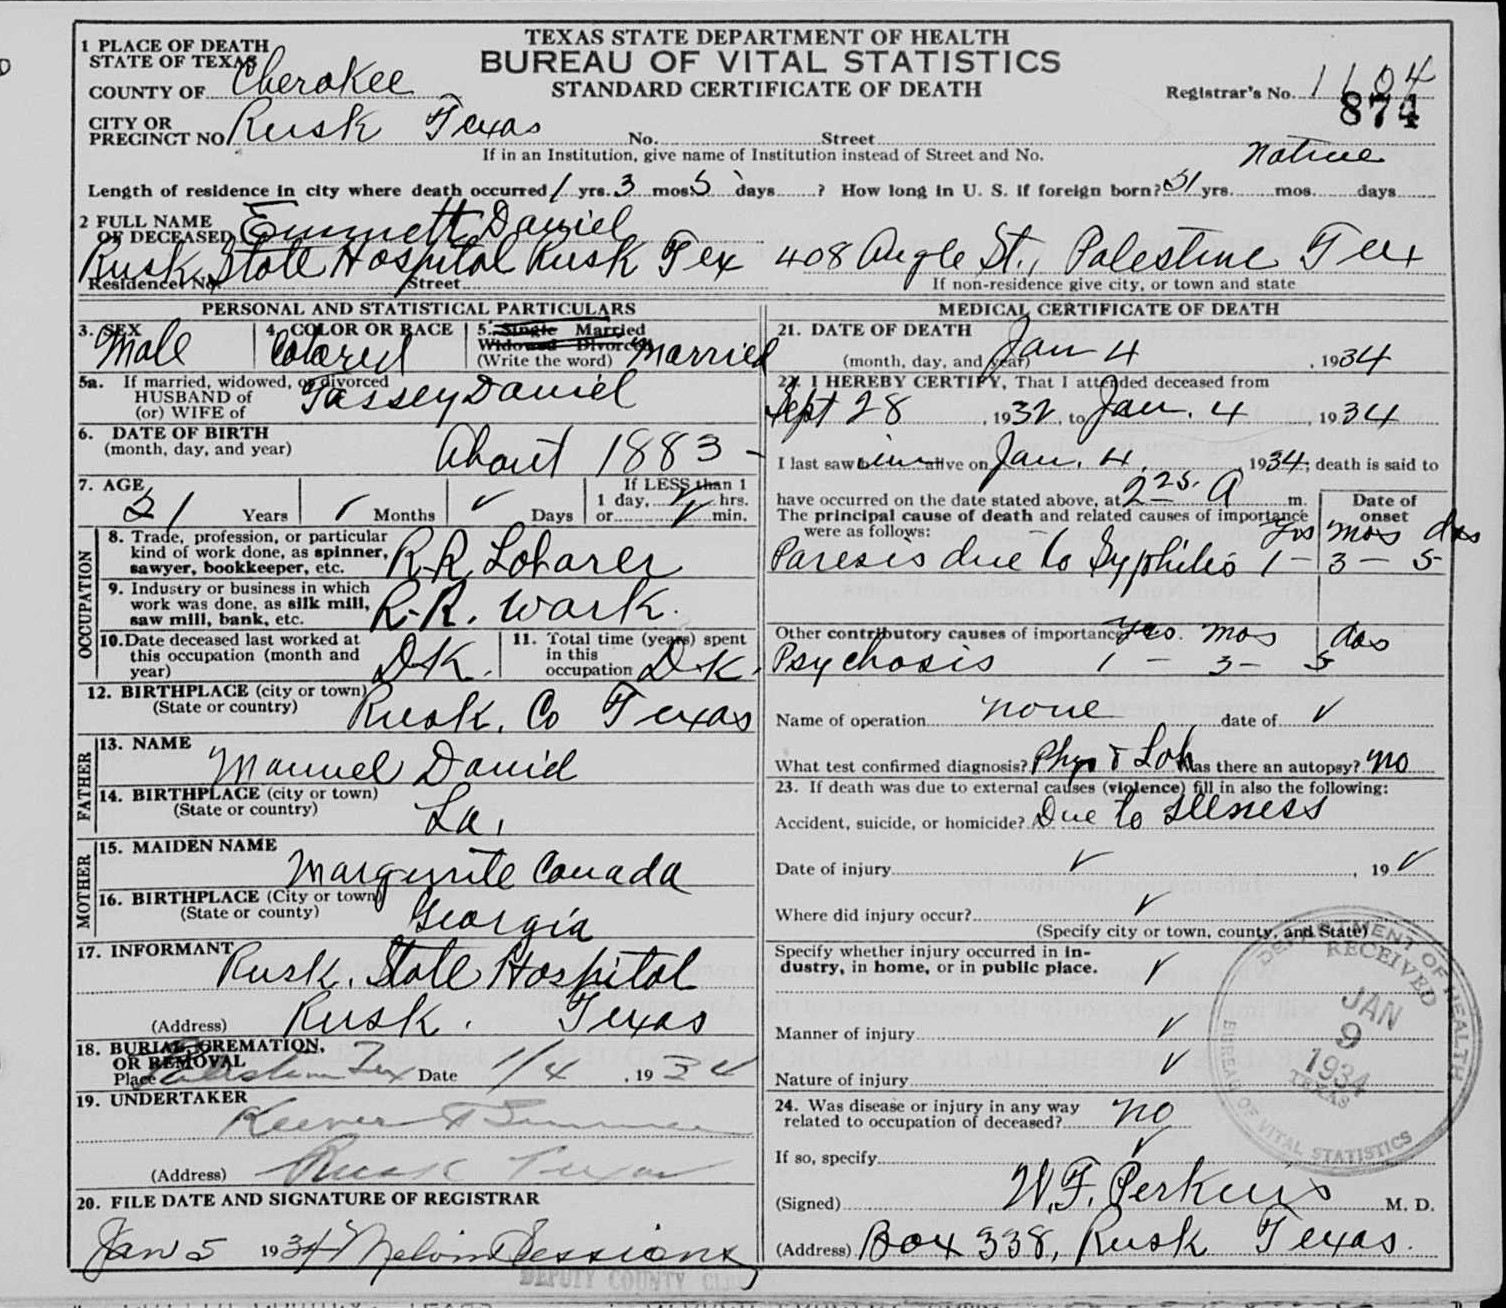 TEXAS STATE DEPARTMENT OF HEALTH
BUREAU OF VITAL STATISTICS
STANDARD CERTIFICATE OF DEATH
1 PLACE OF DEATH
STATE OF TEXAS
COUNTY OF Cherokee
Registrar's No. 1104
874
CITY OR
PRECINCT NO. Rusk Texas No. Street
If in an Institution, give name of Institution instead of Street and No.
Native
Length of residence in city where death occurred 1 yrs. 3 mos. 5 days ? How long in U. S. if foreign born? 51 yrs. mos. days
2 FULL NAME
OF DECEASED Emmett Daniel
Rusk State Hospital Rusk Tex 408 Angle St., Palestine Tex
Residence No. Street If non-residence give city, or town and state
PERSONAL AND STATISTICAL PARTICULARS
3. SEX Male
4. COLOR OR RACE Colored
5. Single Married
Widowed Divorced
(Write the word) Married
5a. If married, widowed, or divorced
HUSBAND of
(or) WIFE of Tassey Daniel
6. DATE OF BIRTH
(month, day, and year) About 1883 -
7. AGE
Years Months Days
If LESS than 1
1 day, hrs.
or min.
OCCUPATION
8. Trade, profession, or particular
kind of work done, as spinner,
sawyer, bookkeeper, etc. R.R. Loharer
9. Industry or business in which
work was done, as silk mill,
saw mill, bank, etc. R.R. Work.
10. Date deceased last worked at
this occupation (month and
year) D.K.
11. Total time (years) spent
in this
occupation D.K.
12. BIRTHPLACE (city or town)
(State or country) Rusk. Co Texas
FATHER
13. NAME Manuel Daniel
14. BIRTHPLACE (city or town)
(State or country) La.
MOTHER
15. MAIDEN NAME Margurite Canada
16. BIRTHPLACE (City or town)
(State or county) Georgia
17. INFORMANT Rusk. State Hospital
(Address) Rusk. Texas
18. BURIAL, CREMATION,
OR REMOVAL
Place Palestine Tex Date 1/4, 1934
19. UNDERTAKER
(Address) Rusk Texas
20. FILE DATE AND SIGNATURE OF REGISTRAR
Jan 5 1934 Melvin Sessions
DEPUTY COUNTY
MEDICAL CERTIFICATE OF DEATH
21. DATE OF DEATH
(month, day, and year) Jan 4, 1934
22. I HEREBY CERTIFY, That I attended deceased from
Sept 28, 1932, to Jan. 4, 1934
I last saw him alive on Jan. 4, 1934; death is said to
have occurred on the date stated above, at 2 25 A m.
The principal cause of death and related causes of importance
were as follows:
Date of
onset
yrs mos das
Paresis due to Syphilis 1 - 3 - 5
Other contributory causes of importance yrs. mos das
Psychosis 1 - 3 - 5
Name of operation none date of ✓
What test confirmed diagnosis? Phys & Lab Was there an autopsy? no
23. If death was due to external causes (violence) fill in also the following:
Accident, suicide, or homicide? Due to Illness
Date of injury ✓, 19 ✓
Where did injury occur? ✓
(Specify city or town, county, and State)
Specify whether injury occurred in in-
dustry, in home, or in public place. ✓
Manner of injury ✓
Nature of injury ✓
24. Was disease or injury in any way
related to occupation of deceased? no
If so, specify ✓
(Signed) W.F. Perkins M. D.
(Address) Box 338, Rusk Texas.
DEPARTMENT OF HEALTH
RECEIVED
JAN
9
1934
TEXAS
BUREAU OF VITAL STATISTICS